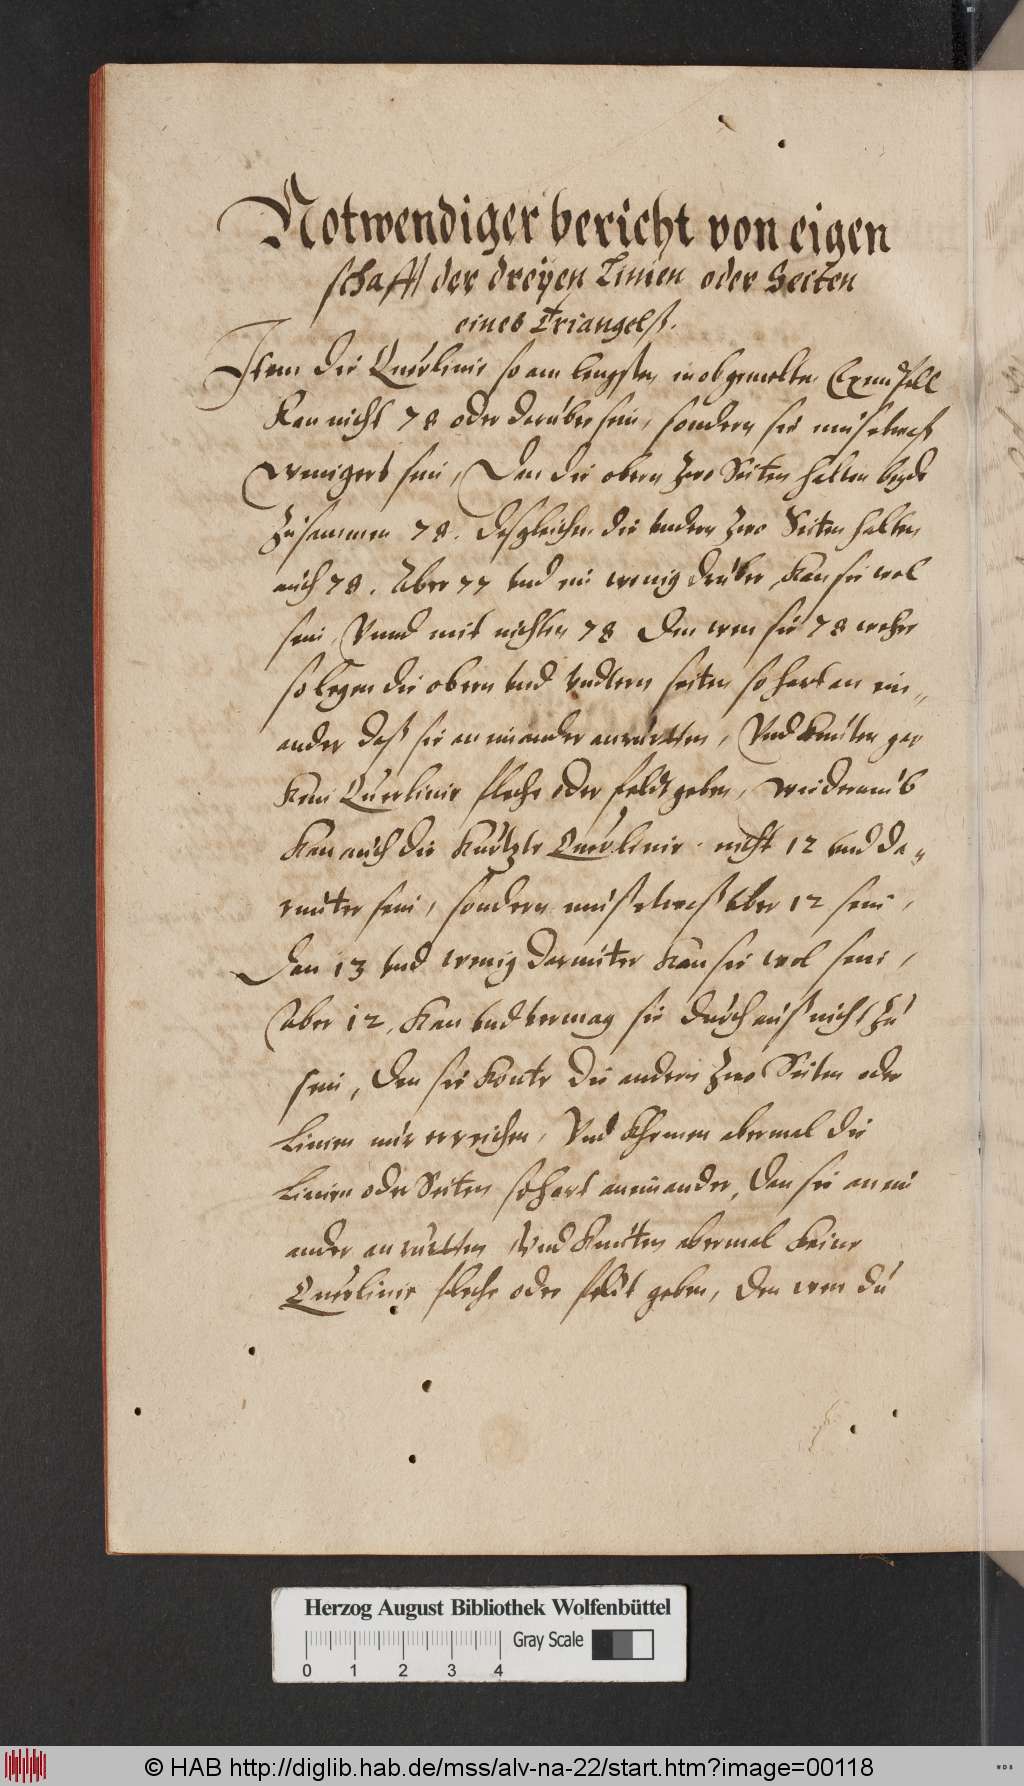 Notwendiger bericht von eigen
schafft der dreÿen Linien oder Seiten
eines Triangelß.
Item die Querlinie so am lengsten, in obgemelten Exempell
Kan nicht 78 oder darüber sein, sondern sie muß etwaß
wenigers sein, Dan die obern zwo Seiten halten beyde
Zusammen 78. desgleichen die undern zwo Seiten halten
auch 78. Aber 77 und ein wenig drüber, Kan sie wol
sein, Vnnd mit nichten 78 Den wen sie 78 wehre
so legen die obern und undtern seiten so hart an ein„
ander daß sie an einander anrurtten, Und Kenten gar
Kein Querlinie fleche oder feldt geben, wiederumb
Kan auch die Kurtzte Querlinie nicht 12 und da„
runter sein, sondern muß etwaß über 12 sein,
Dan 13 und wenig darunter Kan sie wol sein,
Aber 12, Kan und vermag sie durchauß nicht zu
sein, Den sie Konte die andern zwo Seiten oder
Linien nur erreichen, Und Khemen abermal die
Linien oder Seiten so hart aneinander, Dan sie an ein
ander anrurtten Und Kenten abermal Keine
Querlinie fleche oder feldt geben, Den wen du
Herzog August Bibliothek Wolfenbüttel
Gray Scale
0 1 2 3 4
© HAB http://diglib.hab.de/mss/alv-na-22/start.htm?image=00118